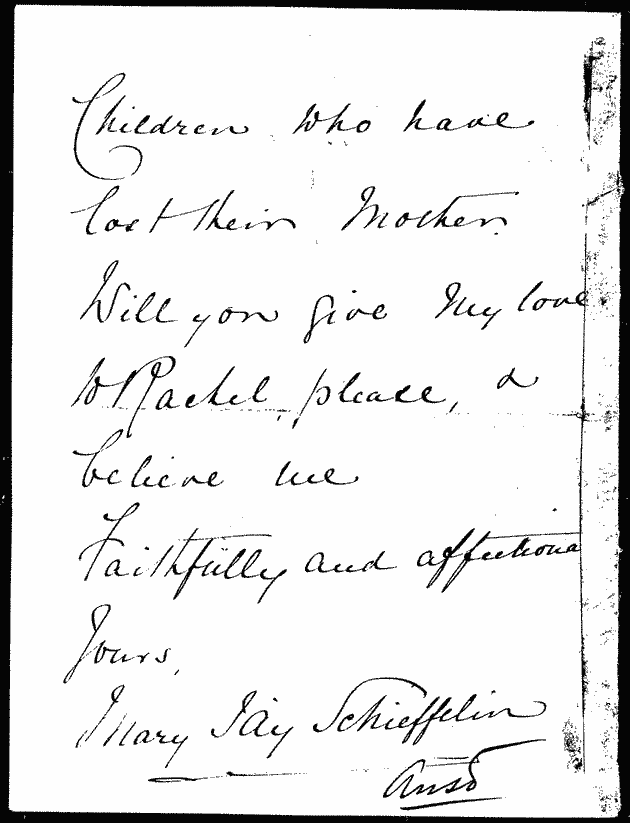 Children who have
lost their Mother.
Will you give my love
to Rachel, please, &
believe me
Faithfully and affectiona
Yours,
Mary Jay Schieffelin